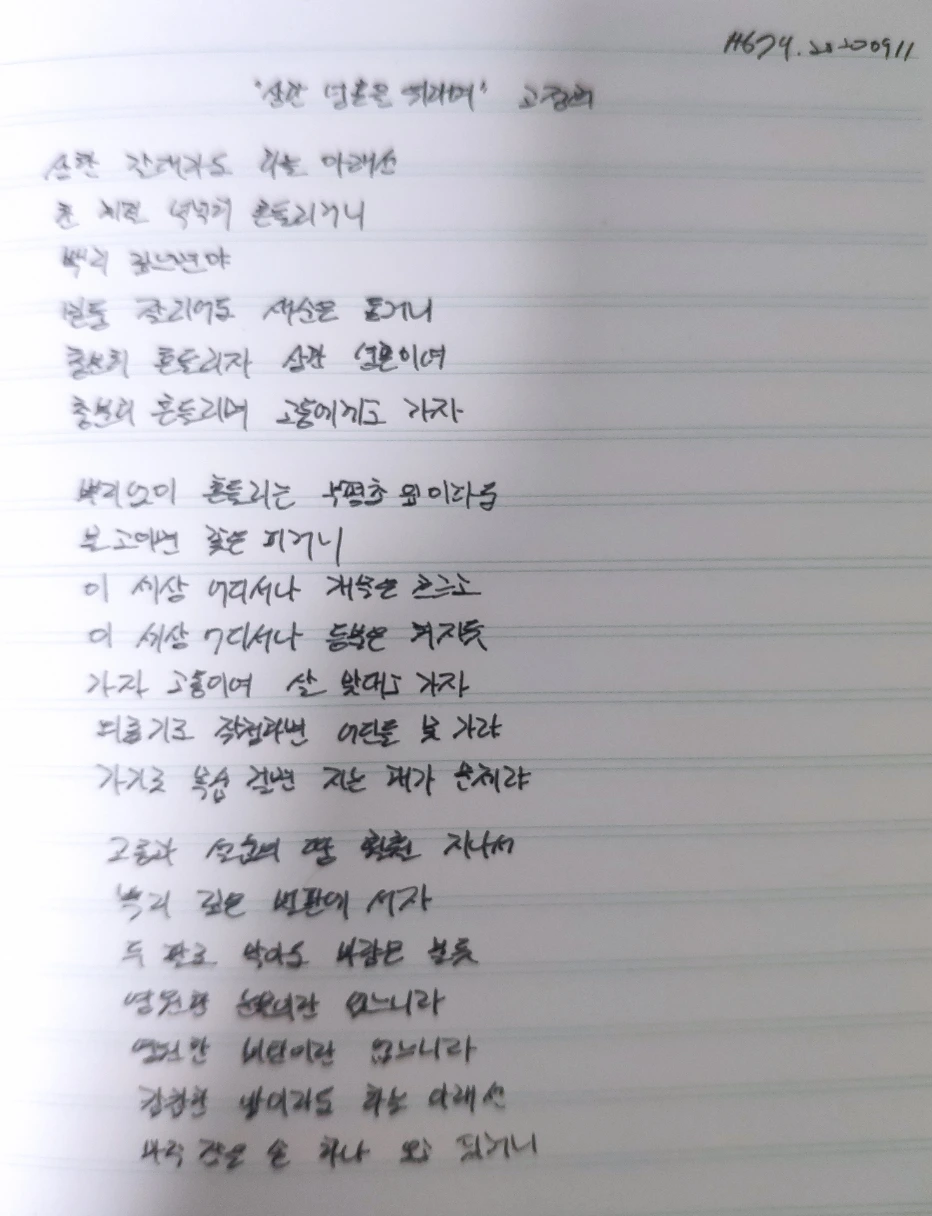 H674. 20200911
"상한 영혼을 위하여" 고정희
상한 갈대라도 하늘 아래선
한 계절 넉넉히 흔들리거니
뿌리 깊으면야
밑둥 잘리어도 새순은 돋거니
충분히 흔들리자 상한 영혼이여
충분히 흔들리며 고통에게로 가자
뿌리없이 흔들리는 부평초 잎이라도
물 고이면 꽃은 피거니
이 세상 어디서나 개울은 흐르고
이 세상 어디서나 등불은 켜지듯
가자 고통이여 살 맞대고 가자
외롭기로 작정하면 어딘들 못 가랴
가기로 목숨 걸면 지는 해가 문제랴
고통과 설움의 땅 훨훨 지나서
뿌리 깊은 벌판에 서자
두 팔로 막아도 바람은 불듯
영원한 눈물이란 없느니라
영원한 비탄이란 없느니라
캄캄한 밤이라도 하늘 아래선
마주 잡을 손 하나 오고 있거니